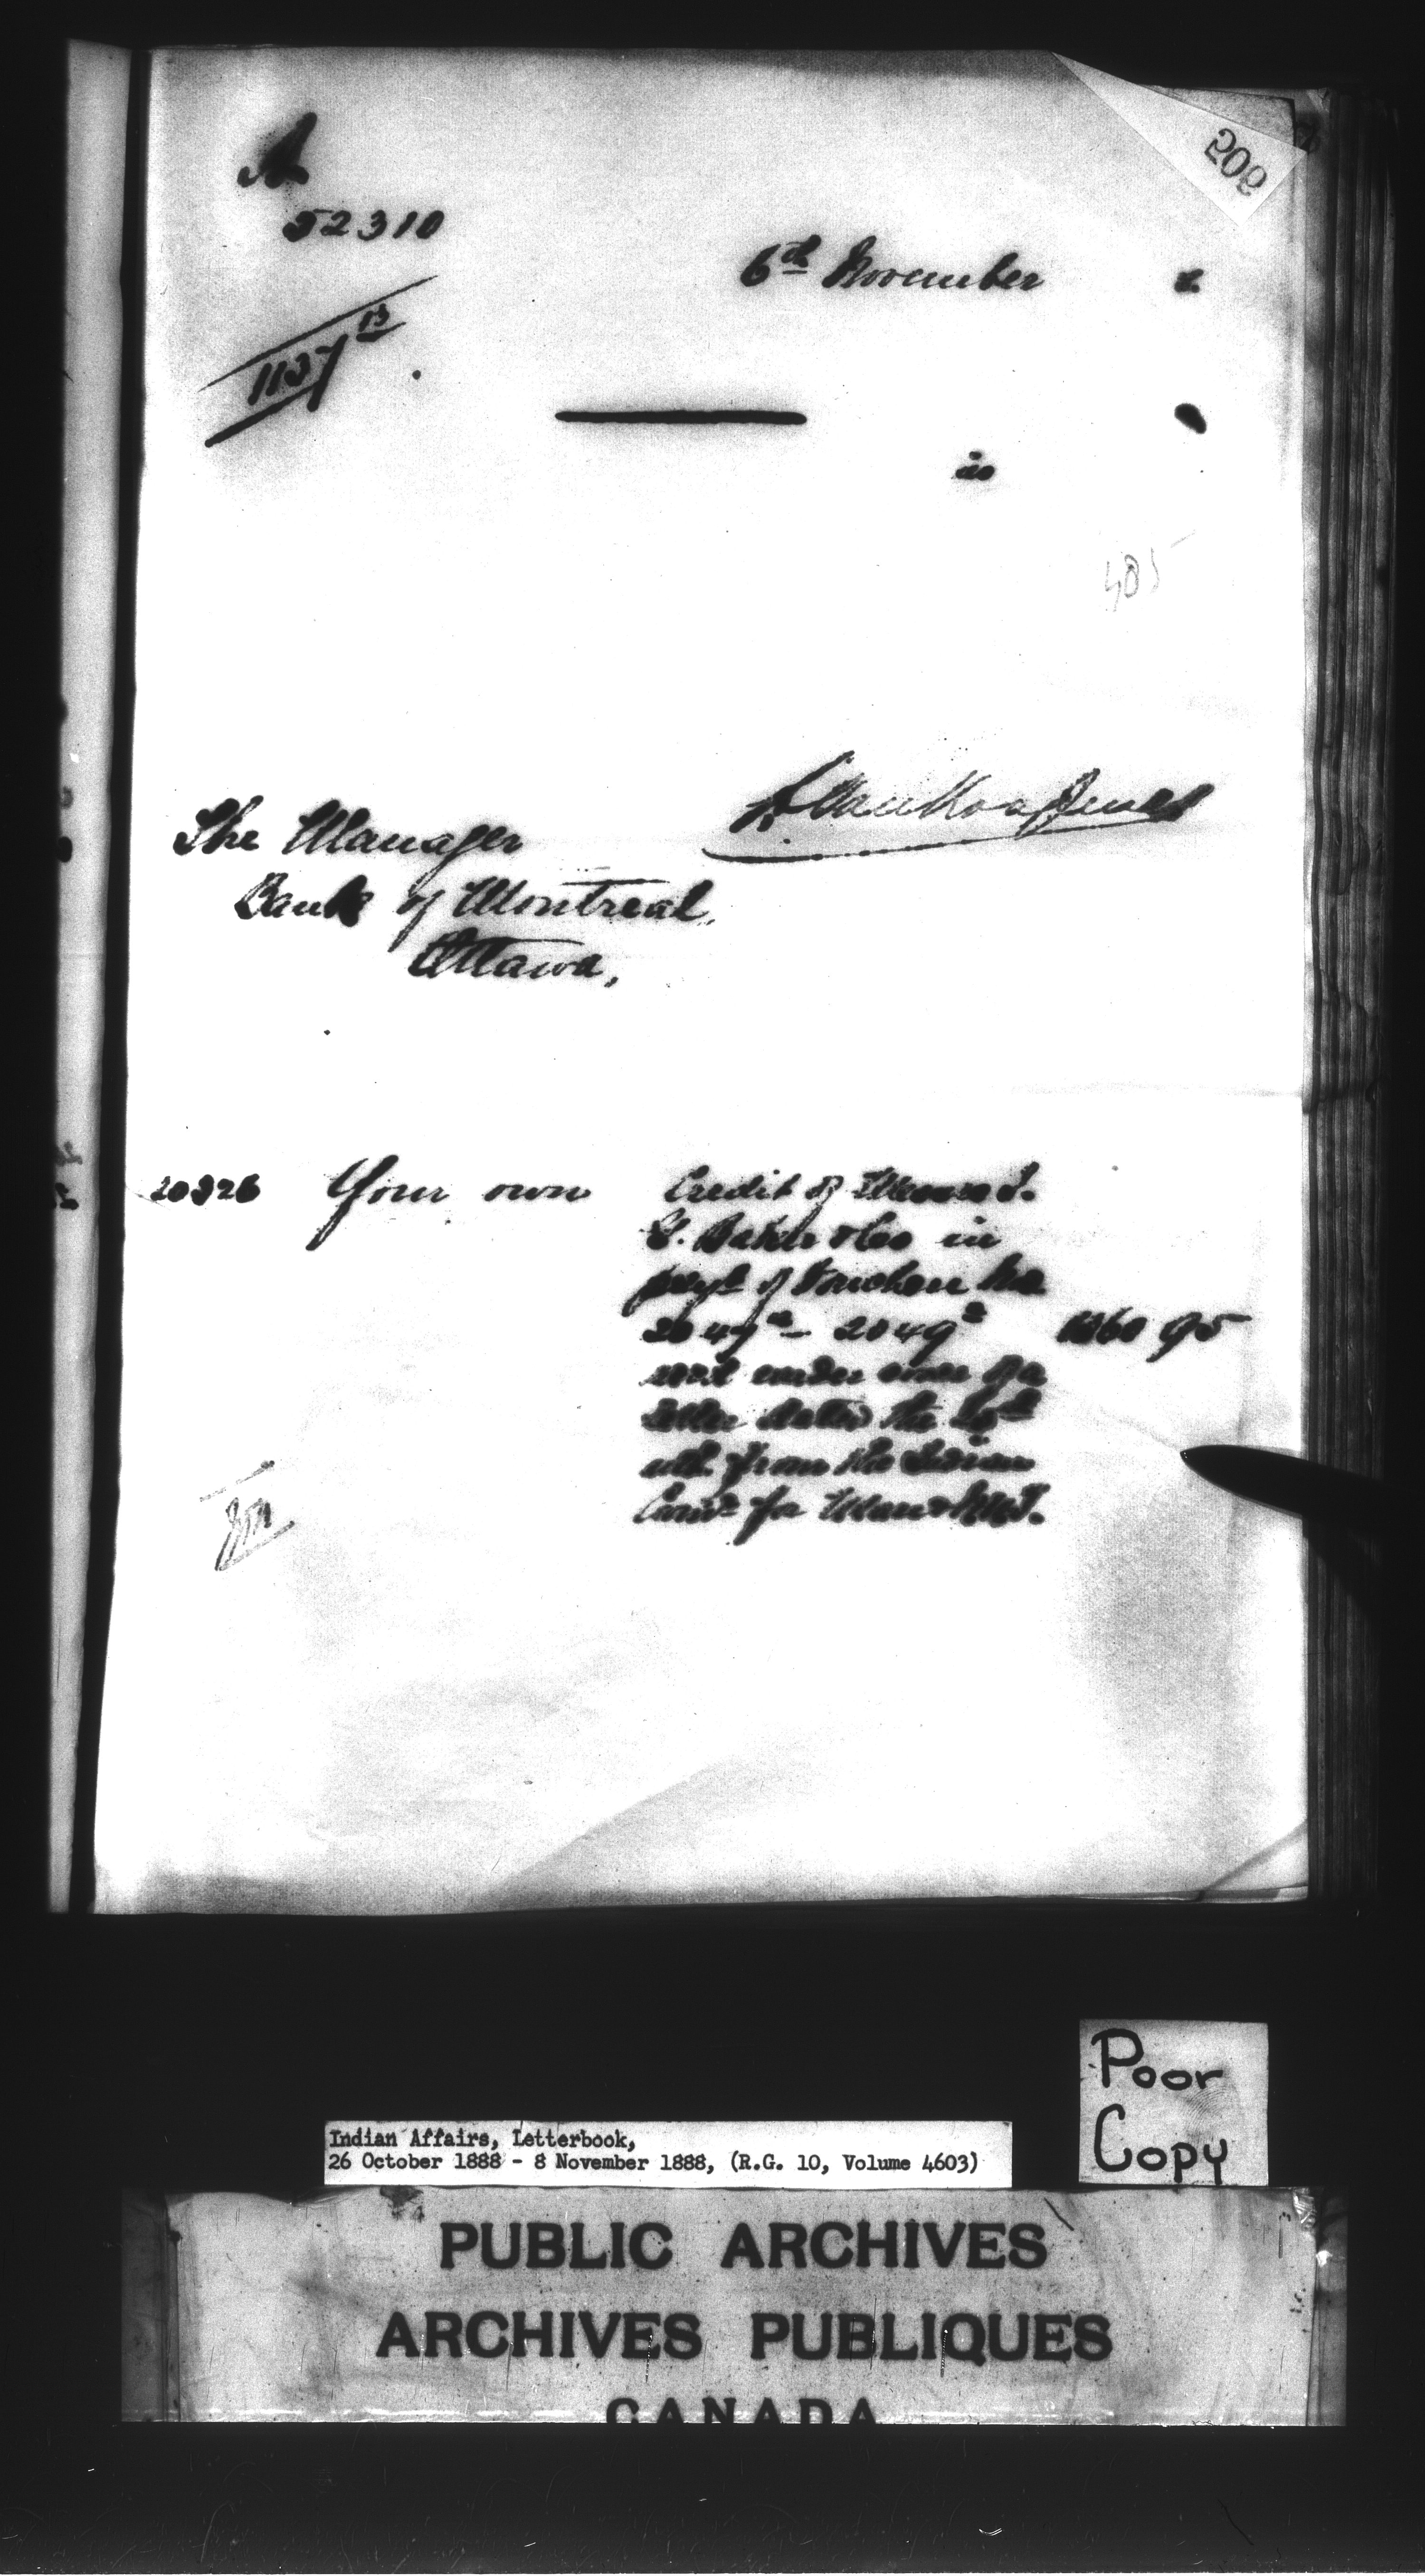 A
52310
6th November
1137 13
is
485
The Manager
Bank of Montreal,
Ottawa,
20326 Your own Credit of Messrs I.
G. Baker & Co in
payt of Voucher No
2047a - 2049a 1360 95
recd under cover of a
letter dated the
ult. from the Indian
Comr for Man & N.W.T.
Poor
Copy
Indian Affairs, Letterbook,
26 October 1888 - 8 November 1888, (R.G. 10, Volume 4603)
PUBLIC ARCHIVES
ARCHIVES PUBLIQUES
CANADA